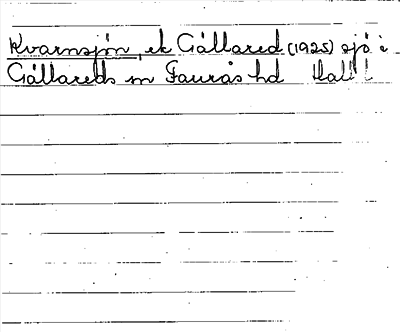 Kvarnsjön, ek Gällared (1925) sjö i
Gällareds sn Faurås hd Hall